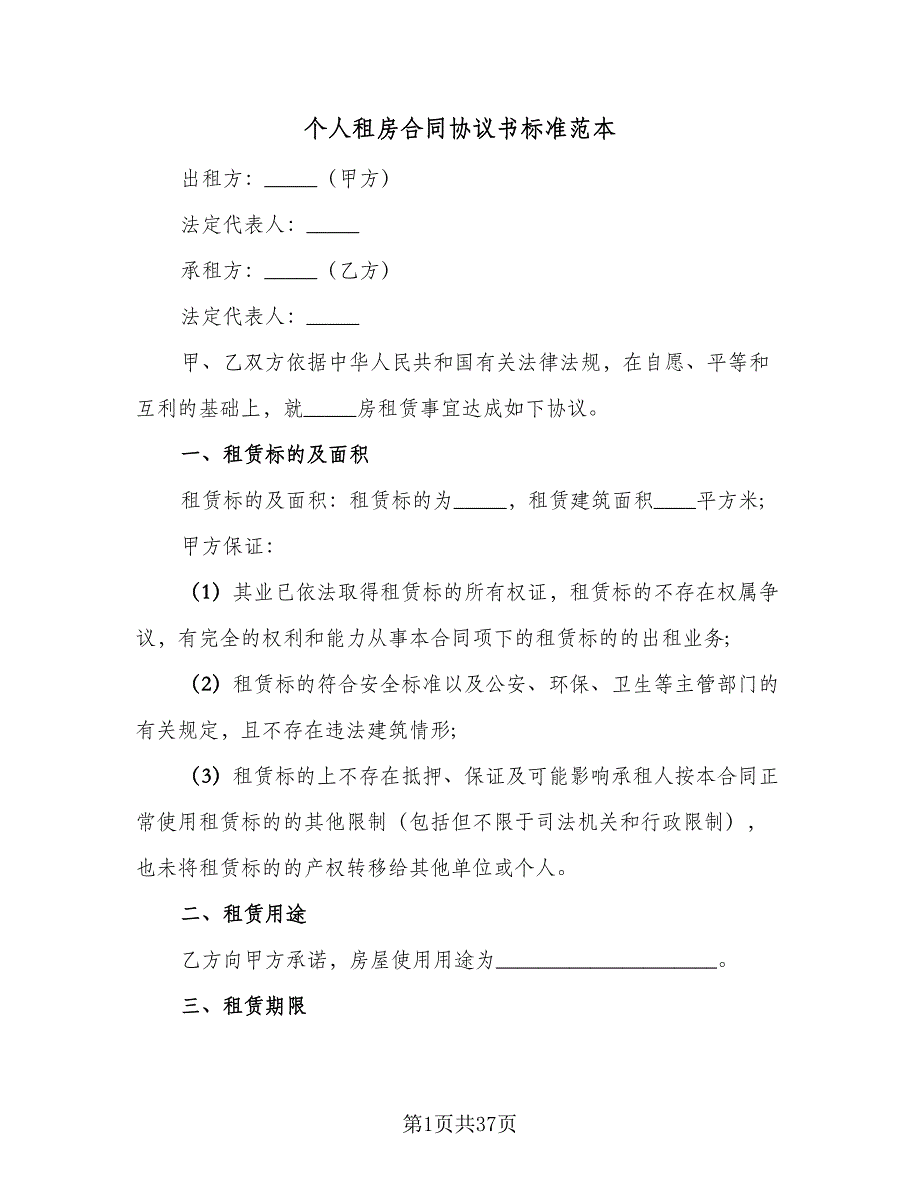 个人租房合同协议书标准范本
出租方：_____（甲方）
法定代表人：_____
承租方：_____（乙方）
法定代表人：_____
甲、乙双方依据中华人民共和国有关法律法规，在自愿、平等和
互利的基础上，就_____房租赁事宜达成如下协议。
一、租赁标的及面积
租赁标的及面积：租赁标的为_____，租赁建筑面积____平方米;
甲方保证：
（1）其业已依法取得租赁标的所有权证，租赁标的不存在权属争
议，有完全的权利和能力从事本合同项下的租赁标的的出租业务;
（2）租赁标的符合安全标准以及公安、环保、卫生等主管部门的
有关规定，且不存在违法建筑情形;
（3）租赁标的上不存在抵押、保证及可能影响承租人按本合同正
常使用租赁标的的其他限制（包括但不限于司法机关和行政限制），
也未将租赁标的的产权转移给其他单位或个人。
二、租赁用途
乙方向甲方承诺，房屋使用用途为_____________________。
三、租赁期限
第1页共37页